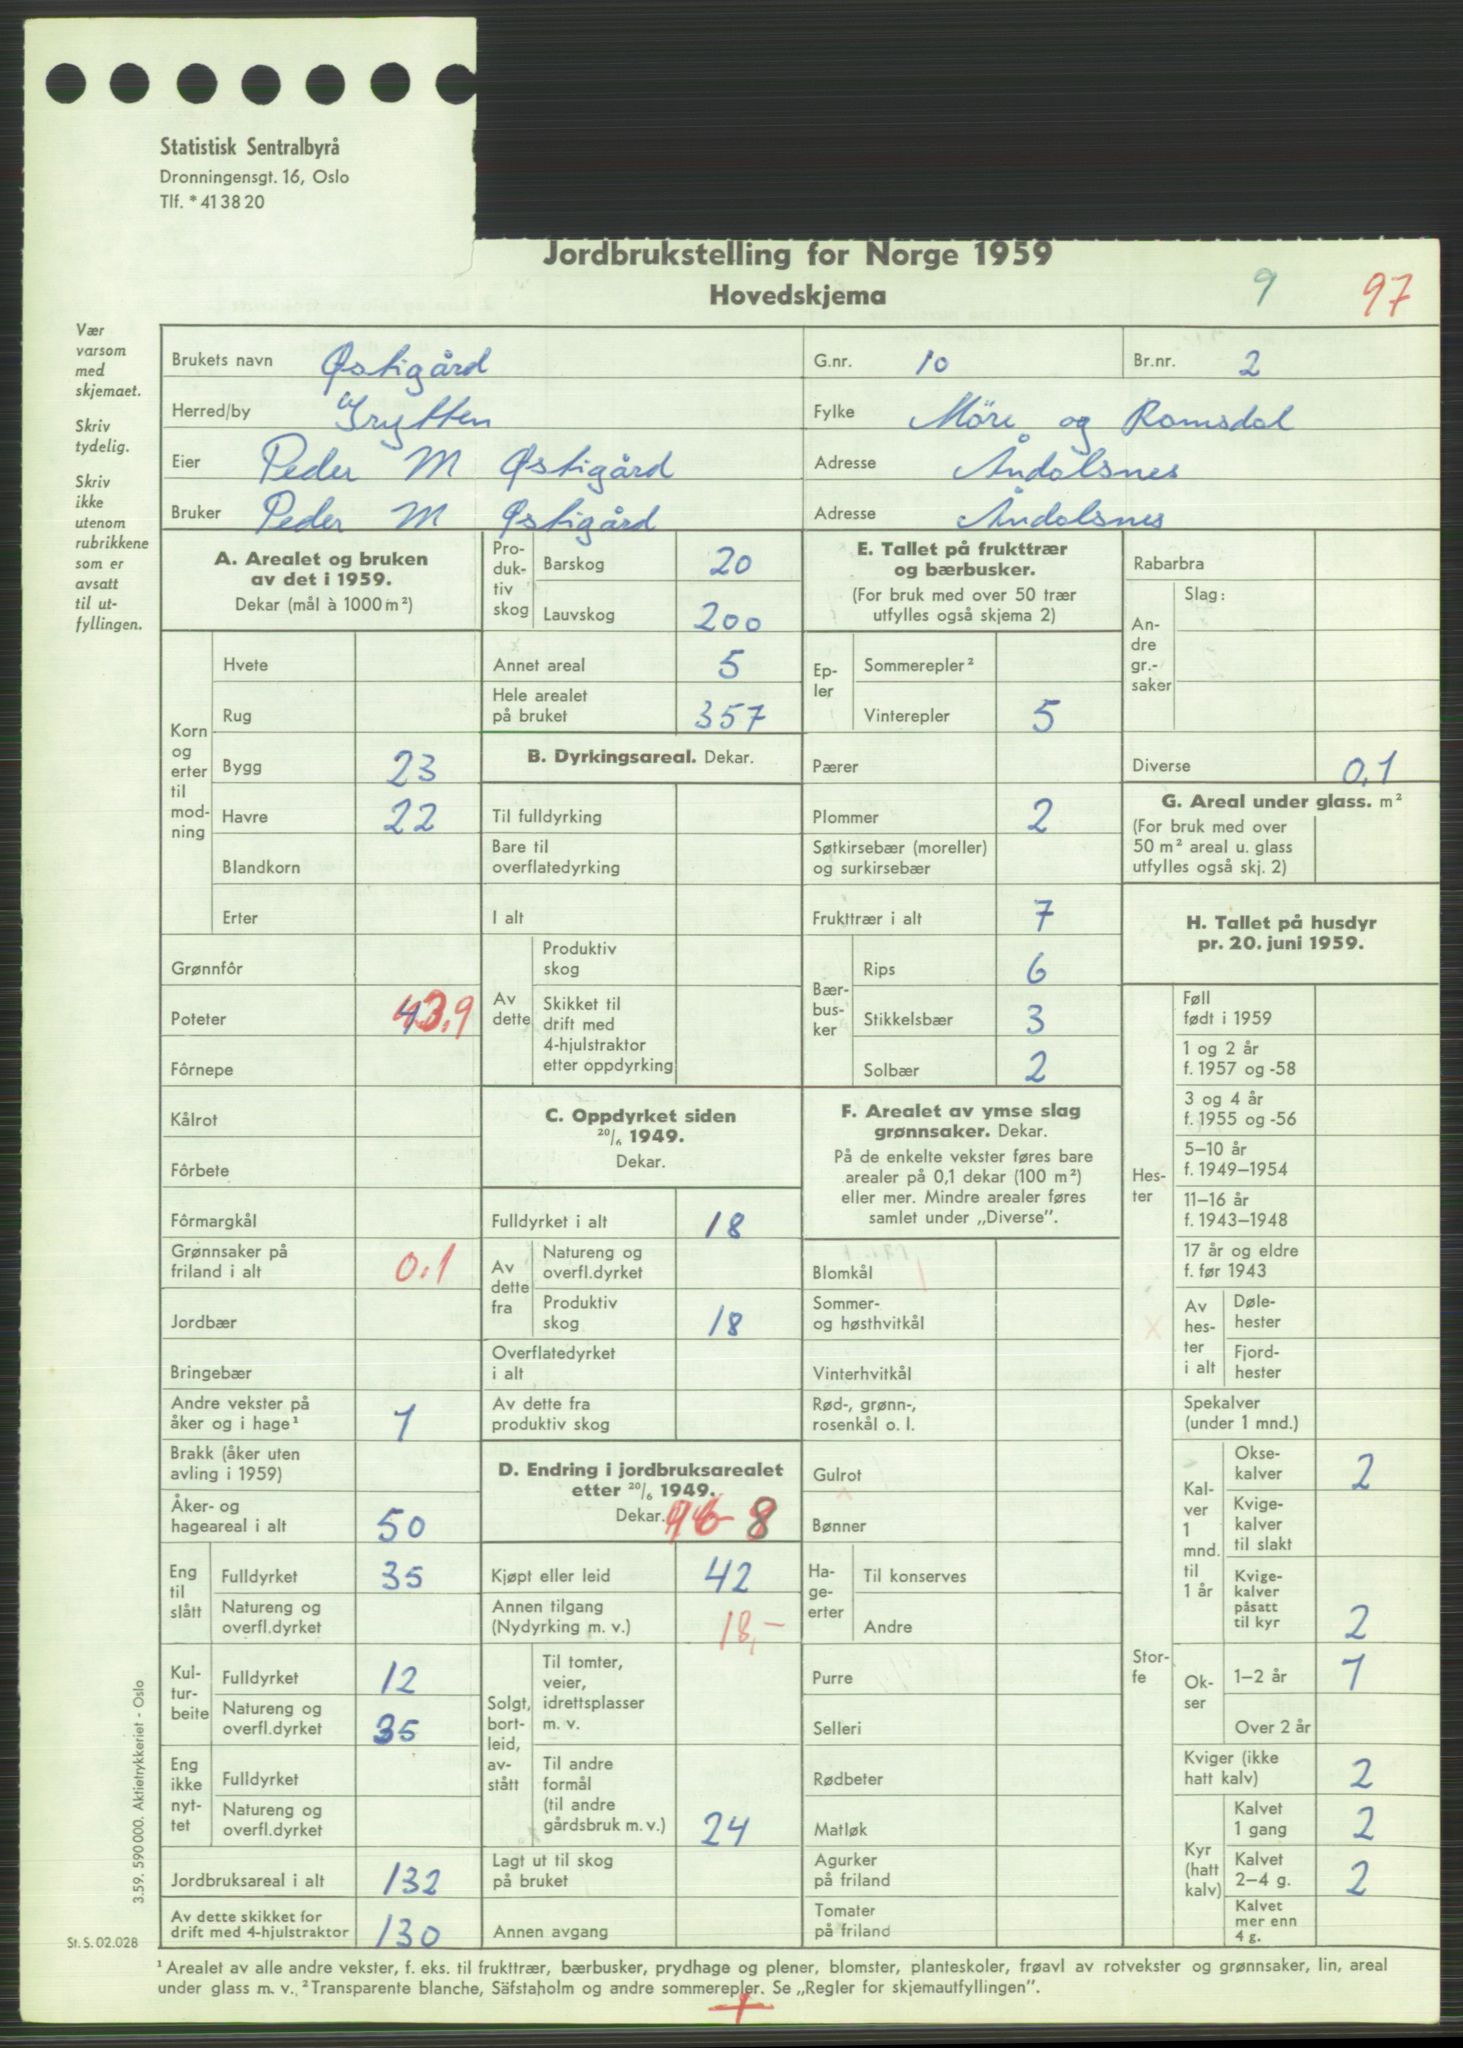 Statistisk Sentralbyrå
Dronningensgt. 16, Oslo
Tlf. * 41 38 20
Jordbrukstelling for Norge 1959
Hovedskjema
9
97
Vær
varsom
med
skjemaet.
Skriv
tydelig.
Skriv
ikke
utenom
rubrikkene
som er
avsatt
til ut-
fyllingen.
Brukets navn Østigård G.nr. 10 Br.nr. 2
Herred/by Grytten Fylke Möre og Romsdal
Eier Peder M Østigård Adresse Åndalsnes
Bruker Peder M Østigård Adresse Åndalsnes
A. Arealet og bruken
av det i 1959.
Dekar (mål à 1000 m²)
Korn
og
erter
til
mod-
ning
Hvete
Rug
Bygg 23
Havre 22
Blandkorn
Erter
Grønnfôr
Poteter 3,9
Fôrnepe
Kålrot
Fôrbete
Fôrmargkål
Grønnsaker på
friland i alt 0,1
Jordbær
Bringebær
Andre vekster på
åker og i hage¹ 1
Brakk (åker uten
avling i 1959)
Åker- og
hageareal i alt 50
Eng
til
slått
Fulldyrket 35
Natureng og
overfl.dyrket
Kul-
tur-
beite
Fulldyrket 12
Natureng og
overfl.dyrket 35
Eng
ikke
nyt-
tet
Fulldyrket
Natureng og
overfl.dyrket
Jordbruksareal i alt 132
Av dette skikket for
drift med 4-hjulstraktor 130
Pro-
duk-
tiv
skog
Barskog 20
Lauvskog 200
Annet areal 5
Hele arealet
på bruket 357
B. Dyrkingsareal. Dekar.
Til fulldyrking
Bare til
overflatedyrking
I alt
Av
dette
Produktiv
skog
Skikket til
drift med
4-hjulstraktor
etter oppdyrking
C. Oppdyrket siden
20/6 1949.
Dekar.
Fulldyrket i alt 18
Av
dette
fra
Natureng og
overfl.dyrket
Produktiv
skog 18
Overflatedyrket
i alt
Av dette fra
produktiv skog
D. Endring i jordbruksarealet
etter 20/6 1949.
Dekar. 8
Kjøpt eller leid 42
Annen tilgang
(Nydyrking m. v.) 18,-
Solgt,
bort-
leid,
av-
stått
Til tomter,
veier,
idrettsplasser
m. v.
Til andre
formål
(til andre
gårdsbruk m. v.) 24
Lagt ut til skog
på bruket
Annen avgang
E. Tallet på frukttrær
og bærbusker.
(For bruk med over 50 trær
utfylles også skjema 2)
Ep-
ler
Sommerepler²
Vinterepler 5
Pærer
Plommer 2
Søtkirsebær (moreller)
og surkirsebær
Frukttrær i alt 7
Bær-
bus-
ker
Rips 6
Stikkelsbær 3
Solbær 2
F. Arealet av ymse slag
grønnsaker. Dekar.
På de enkelte vekster føres bare
arealer på 0,1 dekar (100 m²)
eller mer. Mindre arealer føres
samlet under „Diverse”.
Blomkål
Sommer-
og høsthvitkål
Vinterhvitkål
Rød-, grønn-,
rosenkål o. l.
Gulrot
Bønner
Ha-
ge-
erter
Til konserves
Andre
Purre
Selleri
Rødbeter
Matløk
Agurker
på friland
Tomater
på friland
Rabarbra
An-
dre
gr.-
saker
Slag:
Diverse 0,1
G. Areal under glass. m²
(For bruk med over
50 m² areal u. glass
utfylles også skj. 2)
H. Tallet på husdyr
pr. 20. juni 1959.
Hes-
ter
Føll
født i 1959
1 og 2 år
f. 1957 og -58
3 og 4 år
f. 1955 og -56
5–10 år
f. 1949–1954
11–16 år
f. 1943–1948
17 år og eldre
f. før 1943
Av
hes-
ter
i alt
Døle-
hester
Fjord-
hester
Stor-
fe
Spekalver
(under 1 mnd.)
Kal-
ver
1
mnd.
til
1 år
Okse-
kalver 2
Kvige-
kalver
til slakt
Kvige-
kalver
påsatt
til kyr 2
Ok-
ser
1–2 år 1
Over 2 år
Kviger (ikke
hatt kalv) 2
Kyr
(hatt
kalv)
Kalvet
1 gang 2
Kalvet
2–4 g. 2
Kalvet
mer enn
4 g.
3.59. 590 000. Aktietrykkeriet - Oslo
St. S. 02.028
¹ Arealet av alle andre vekster, f. eks. til frukttrær, bærbusker, prydhage og plener, blomster, planteskoler, frøavl av rotvekster og grønnsaker, lin, areal
under glass m. v. ² Transparente blanche, Säfstaholm og andre sommerepler. Se „Regler for skjemautfyllingen”.